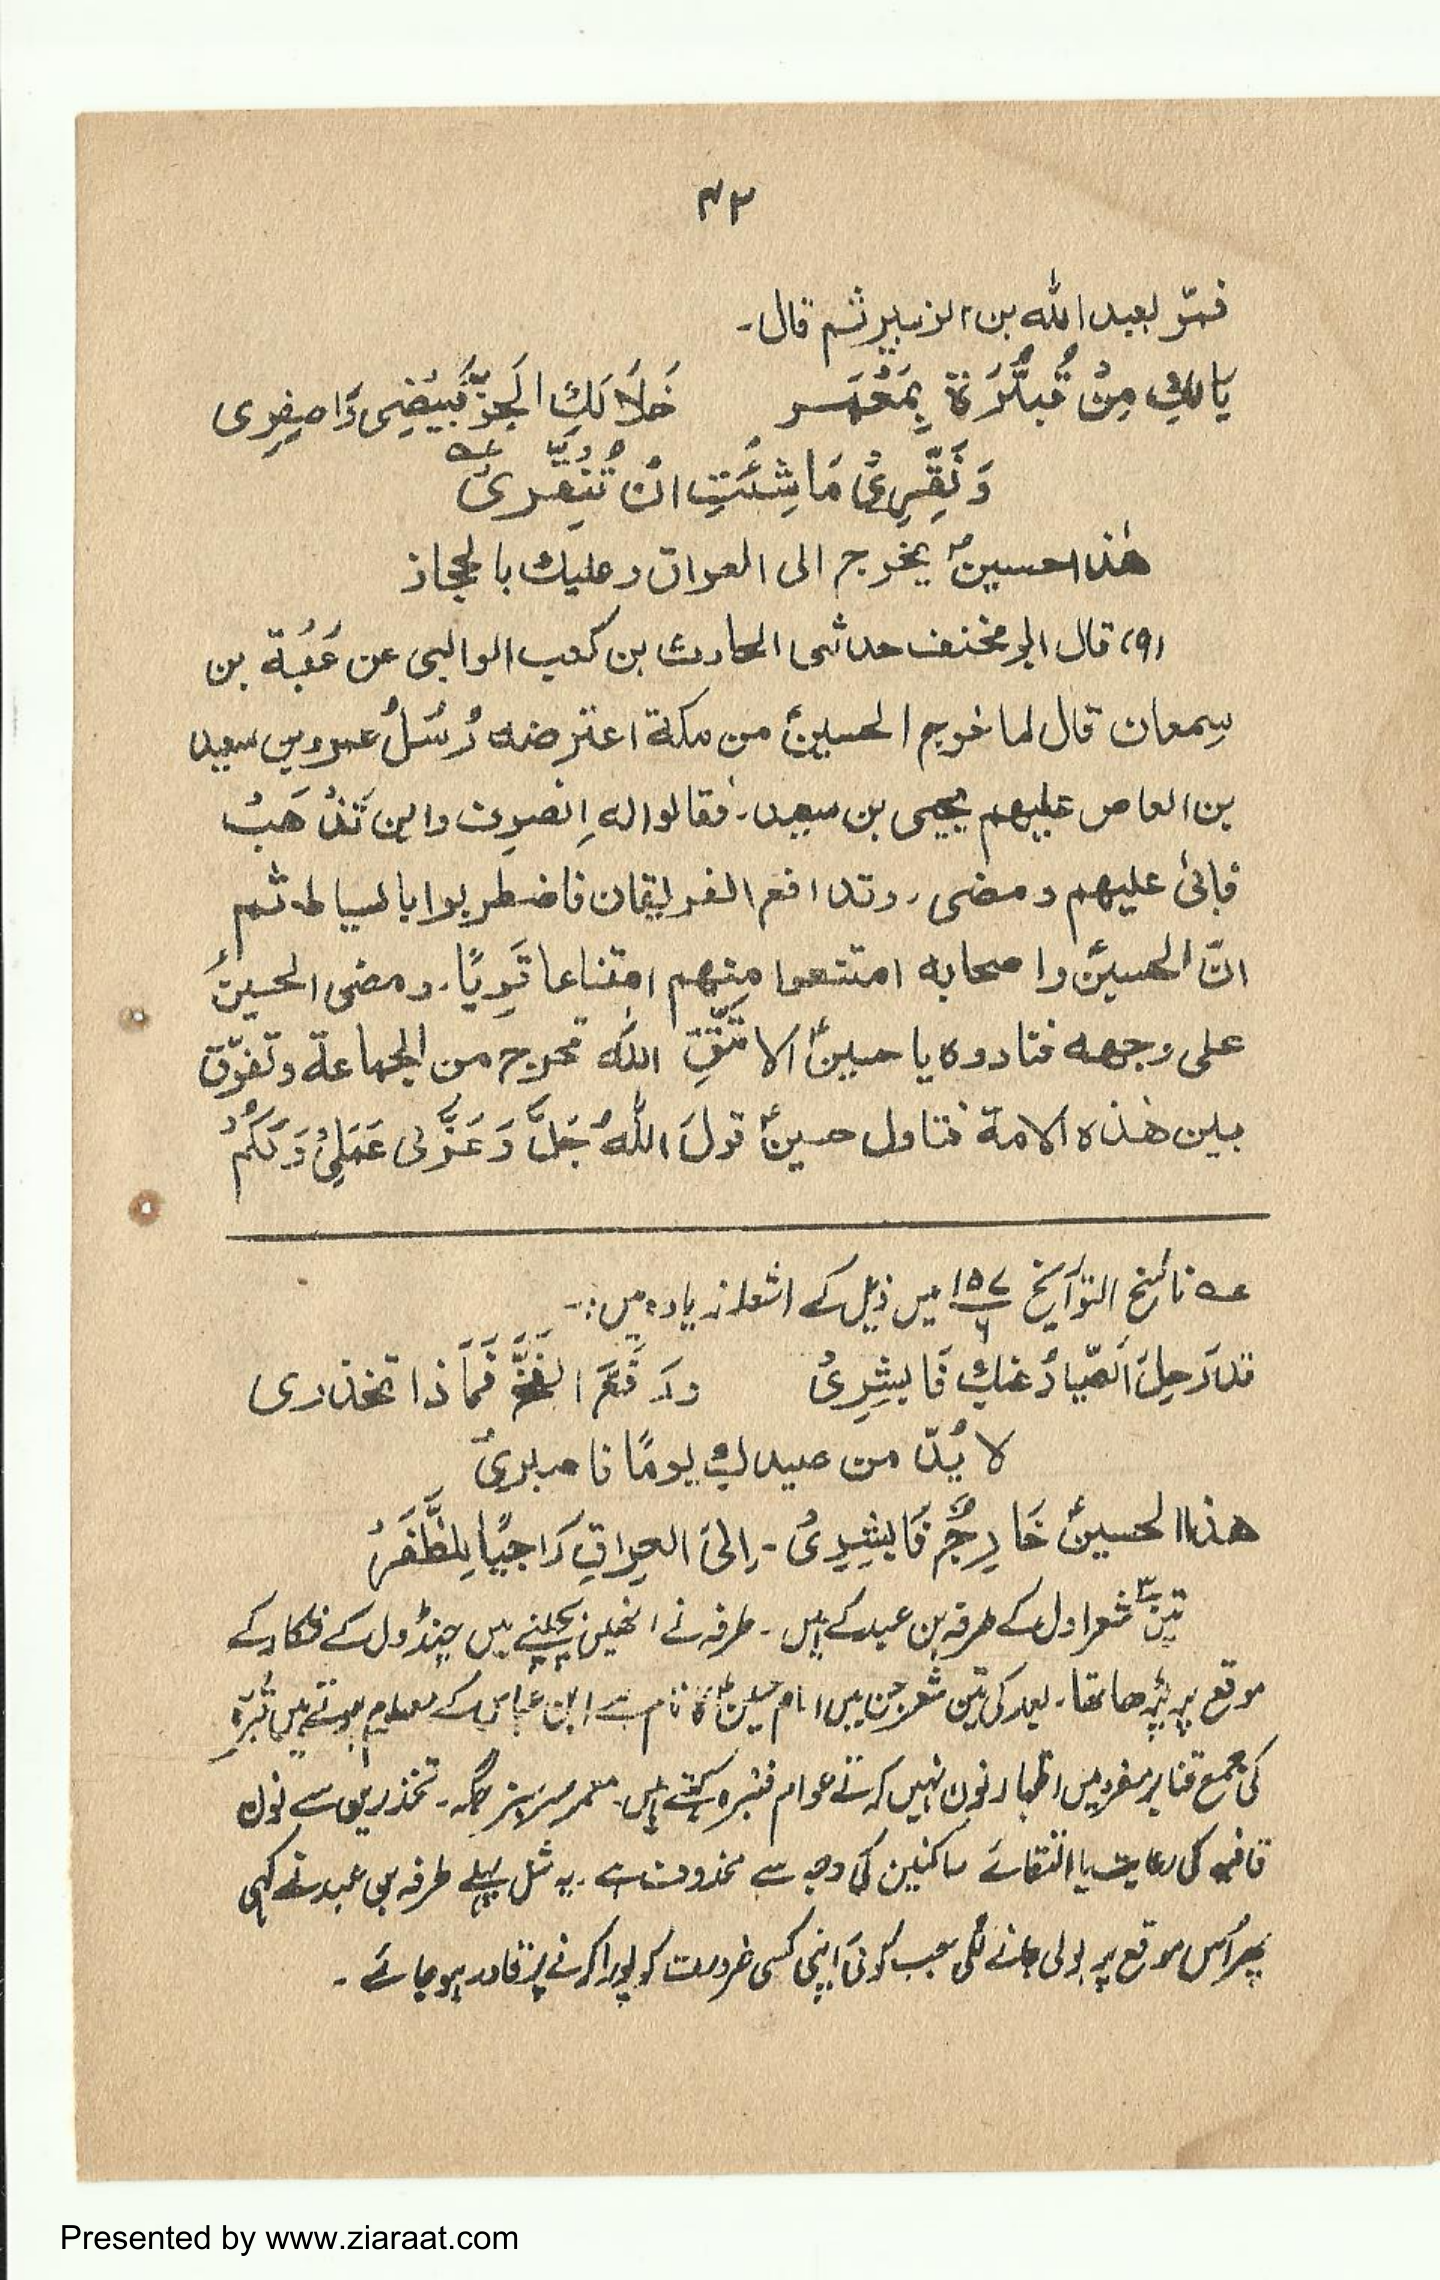 ۴۲
فمرّ بعبد الله بن الزبير ثم قال۔
يالكِ مِنْ قُبَّرَةٍ بِمَعْمَر خَلَا لَكِ الجَوُّ فَبِيضِي وَاصفِرِى
وَنَقِّرِىْ مَا شِئْتِ انْ تُنَقِّرِىْ عہ
هٰذا حسينؑ يخرج الى العراق وعليك بالحجاز
(۹) قال ابو مخنف حدثنى الحارث بن كعب الوالبى عن عُقْبَة بن
سِمعان قال لما خرج الحسينؑ من مكة اعترضه رُسُلُ عمرو بن سعيد
بن العاص عليهم يحيى بن سعيد۔ فقالوا له اِنصرِف واين تَذْهَبُ
فابىٰ عليهم ومضى، وتدافع الفريقان فاضطربوا بالسياط۔ ثم
انّ الحسينؑ واصحابه امتنعوا منهم امتناعا قَوِيًا۔ ومضى الحسينؑ
على وجهه فنادوه يا حسينؑ الا تتَّقِ اللّٰه تخرج من الجماعة وتفرّق
بين هٰذه الامة فتاول حسينؑ قولَ اللّٰهُ جَلَّ وَعَزَّ لى عَمَلِىْ وَلَكُمْ
عہ ناسخ التوّاريخ ۱۵۷/۶ میں ذیل کے اشعار زیادہ ہیں:۔
قد رَحِلَ الصَّيادُ عنكِ فَابشِرِىْ ورَفَعَ الفَخَّ فَمَا ذا تحذرى
لا بُدّ من صيدكِ يومًا فاصبرىْ
هذا الحسينؑ خَارِجٌ فَابشِرِىْ۔ اِلىَ العِراقِ رَاجيًا لِلظَّفَرْ
تین۳ شعر اول کے طرفہ بن عبد کے ہیں۔ طرفہ نے انھیں بچپنے میں چنڈول کے شکار کے
موقع پر پڑھا تھا۔ بعد کی تین شعر جن میں امام حسینؑ کا نام ہے ابن عباس کے معلوم ہوتے ہیں قُبَّرَۃ
کی جمع قنابر مفرد میں اظہار نون نہیں کرتے عوام قنبرہ کہتے ہیں۔ معمر سرسبز جگہ۔ تحذرین سے نون
قافیہ کی رعایت یا التقائے ساکنین کی وجہ سے محذوف ہے۔ یہ مثل پہلے طرفہ بن عبد نے کہی
پھر اُس موقع پر بولی جانے لگی جب کوئی اپنی کسی ضرورت کو پورا کرنے پر قادر ہو جائے۔
Presented by www.ziaraat.com